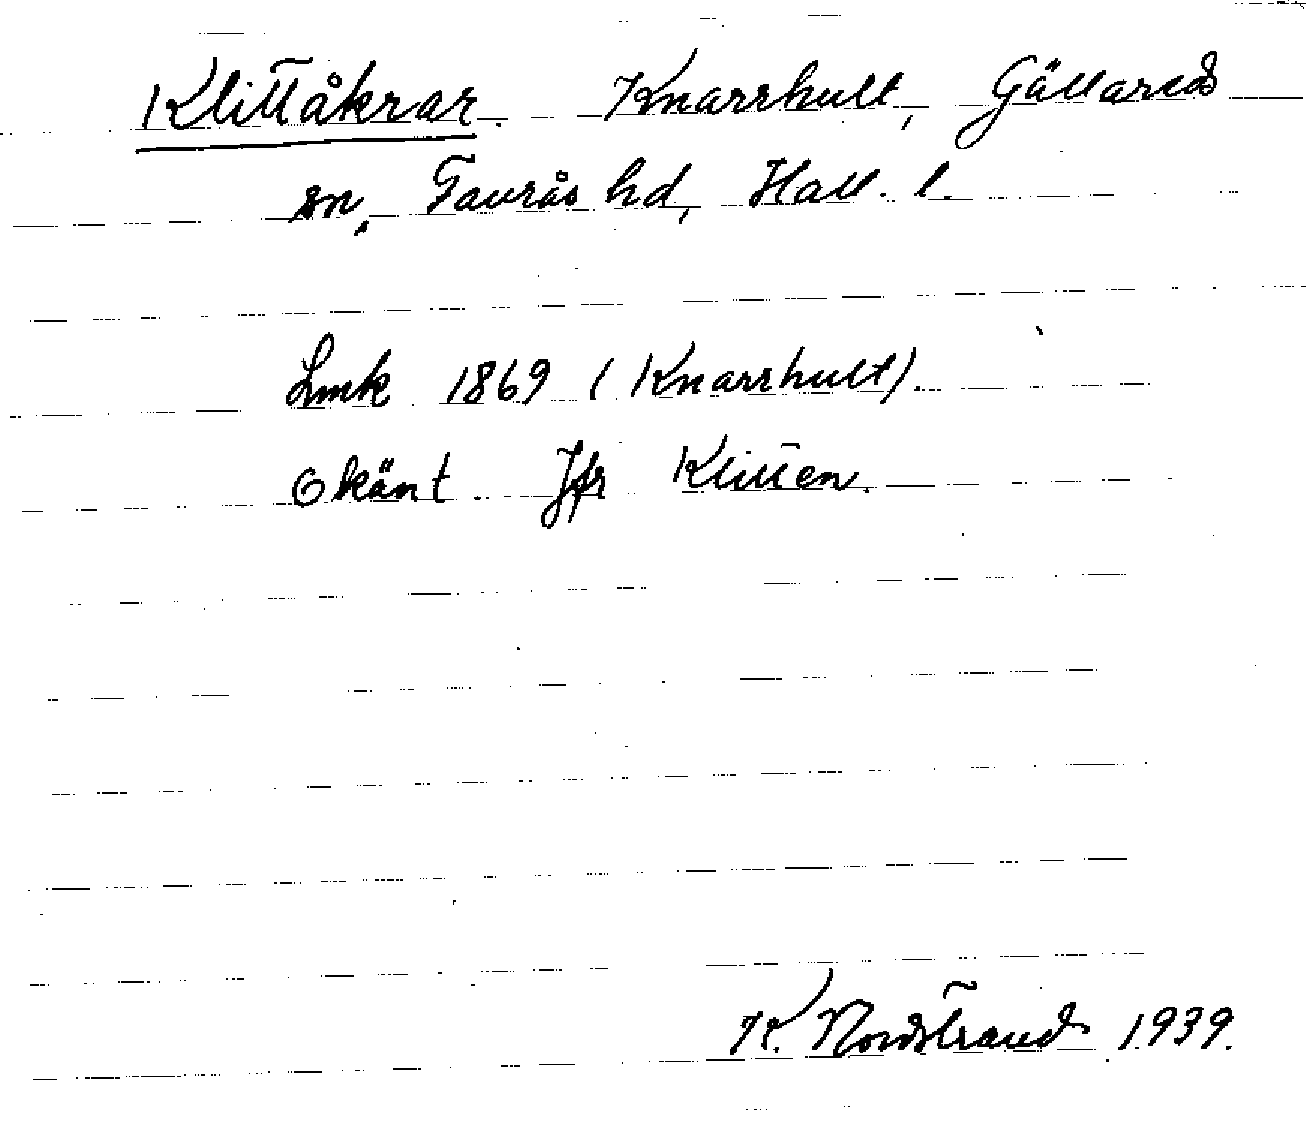 Klittåkrar. Knarrhult, Gällareds
sn, Faurås hd, Hall. l.
Lmk 1869 (Knarrhult)
Okänt. Jfr Klitten.
K. Nordstrand 1939.